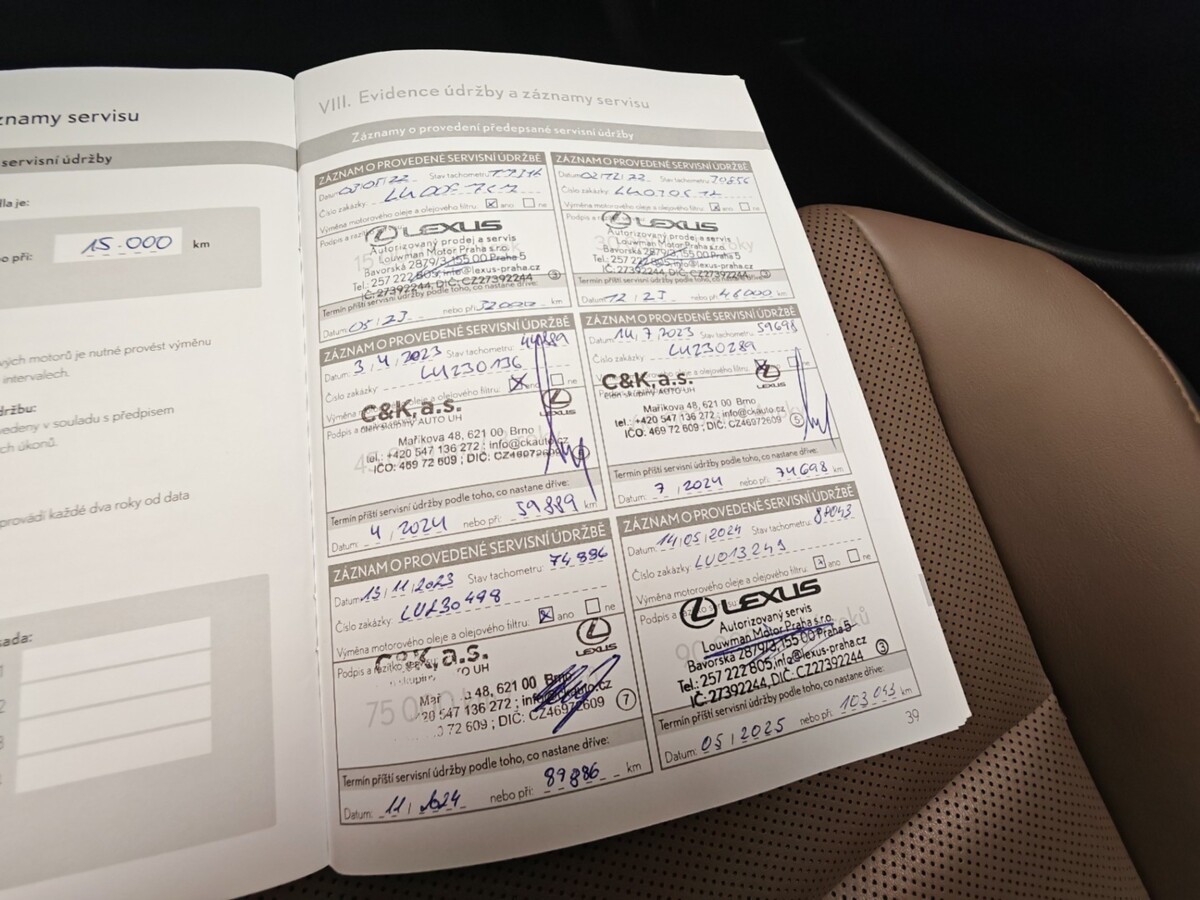 znamy servisu
servisní údržby
dla je:
o při: 15.000 km
ých motorů je nutné provést výměnu
intervalech.
držbu:
vedeny v souladu s předpisem
ch úkonů.
provádí každé dva roky od data
sada:
VIII. Evidence údržby a záznamy servisu
Záznamy o provedení předepsané servisní údržby
ZÁZNAM O PROVEDENÉ SERVISNÍ ÚDRŽBĚ
Datum: 02/05/22 Stav tachometru:
Číslo zakázky:
Výměna motorového oleje a olejového filtru: ano ne
Podpis a
LEXUS
Autorizovaný prodej a servis
Louwman Motor Praha s.r.o.
Bavorská 2879/3, 155 00 Praha 5
Tel.: 257 222 805, info@lexus-praha.cz
IČ: 27392244, DIČ: CZ27392244 3
Termín příští servisní údržby podle toho, co nastane dříve:
Datum: 05/23 nebo při: km
ZÁZNAM O PROVEDENÉ SERVISNÍ ÚDRŽBĚ
Datum: 02/12/22 Stav tachometru:
Číslo zakázky:
Výměna motorového oleje a olejového filtru: ano ne
Podpis a
LEXUS
Autorizovaný prodej a servis
Louwman Motor Praha s.r.o.
Bavorská 2879/3, 155 00 Praha 5
Tel.: 257 222 805, info@lexus-praha.cz
IČ: 27392244, DIČ: CZ27392244 3
Termín příští servisní údržby podle toho, co nastane dříve:
Datum: 12/23 nebo při: 46000 km
ZÁZNAM O PROVEDENÉ SERVISNÍ ÚDRŽBĚ
Datum: 3.4.2023 Stav tachometru: 44889
Číslo zakázky: LU230136
Výměna motorového oleje a olejového filtru: ano ne
Podpis a
C&K, a.s.
člen skupiny AUTO UH
LEXUS
Maříkova 48, 621 00 Brno
tel.: +420 547 136 272 ; info@ckauto.cz
IČO: 469 72 609 ; DIČ: CZ46972609
Termín příští servisní údržby podle toho, co nastane dříve:
Datum: 4/2024 nebo při: 59889 km
ZÁZNAM O PROVEDENÉ SERVISNÍ ÚDRŽBĚ
Datum: 14.7.2023 Stav tachometru: 59698
Číslo zakázky: LU230289
C&K, a.s.
člen skupiny AUTO UH
LEXUS
Maříkova 48, 621 00 Brno
tel.: +420 547 136 272 ; info@ckauto.cz
IČO: 469 72 609 ; DIČ: CZ46972609 5
Termín příští servisní údržby podle toho, co nastane dříve:
Datum: 7/2024 nebo při: 74698 km
ZÁZNAM O PROVEDENÉ SERVISNÍ ÚDRŽBĚ
Datum: 13/11/2023 Stav tachometru: 74886
Číslo zakázky: LU230498
Výměna motorového oleje a olejového filtru: ano ne
Podpis a razítko
K, a.s.
UTO UH
LEXUS
48, 621 00 Brno
20 547 136 272 ; info@ckauto.cz
72 609 ; DIČ: CZ46972609 7
75 0
Termín příští servisní údržby podle toho, co nastane dříve:
Datum: 11/2024 nebo při: 89886 km
ZÁZNAM O PROVEDENÉ SERVISNÍ ÚDRŽBĚ
Datum: 14/05/2024 Stav tachometru: 88043
Číslo zakázky: LU013249
Výměna motorového oleje a olejového filtru: ano ne
Podpis a
LEXUS
Autorizovaný servis
Louwman Motor Praha s.r.o.
Bavorská 2879/3, 155 00 Praha 5
Tel.: 257 222 805, info@lexus-praha.cz
IČ: 27392244, DIČ: CZ27392244 3
Termín příští servisní údržby podle toho, co nastane dříve:
Datum: 05/2025 nebo při: 103 043 km
39